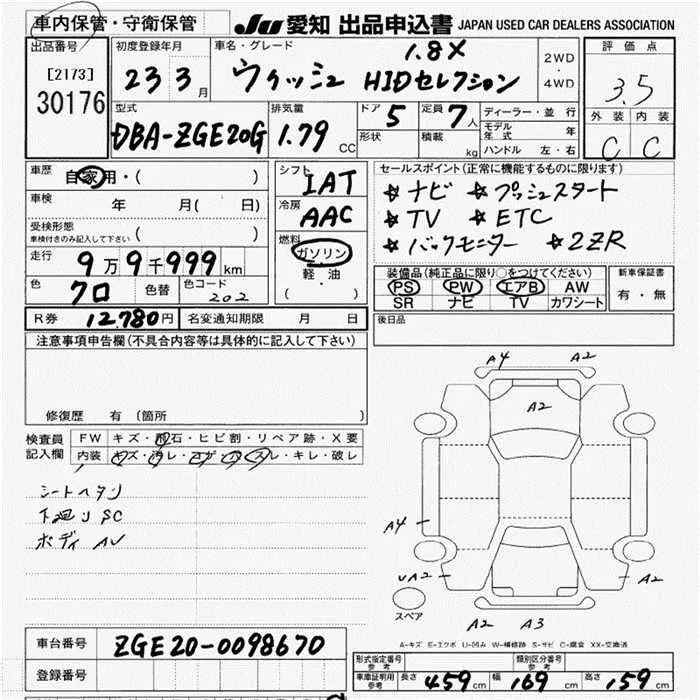 車内保管・守衛保管
JU 愛知 出品申込書 JAPAN USED CAR DEALERS ASSOCIATION
出品番号
[2173]
30176
初度登録年月
23 3月
車名・グレード
1.8X
ウィッシュ HIDセレクション
2WD
・
4WD
評価点
3.5
外装 内装
C C
型式
DBA-ZGE20G
排気量
1.79 CC
ドア 5
形状
定員 7人
積載 kg
ディーラー・並行
モデル年式 年
ハンドル 左・右
車歴
自家用・( )
車検 年 月( 日)
受検形態
車検付きのみ記入して下さい ( )
走行 9万9千999km
色 クロ 色替 色コード 202
R券 12,780円 名変通知期限 月 日
シフト
IAT
冷房
AAC
燃料
ガソリン
軽・油
( )
セールスポイント(正常に機能するものに限ります)
★ナビ ★プッシュスタート
★TV ★ETC
★バックモニター ★2ZR
装備品(純正品に限り○をつけてください)
PS PW エアB AW
SR ナビ TV カワシート
新車保証書
有・無
後日品
注意事項申告欄(不具合内容等は具体的に記入して下さい)
修復歴 有 (箇所 )
検査員記入欄
FW キズ・飛石・ヒビ割・リペア跡・X要
内装 キズ・汚レ・コゲ・穴・スレ・キレ・破レ
シートヘタリ
下廻りSC
ボディAU
A4 A2
A2
A4
UA2 A2
スペア
A2 A3
A-キズ E-エクボ U-凹み W-補修跡 S-サビ C-腐食 XX-交換済
車台番号 ZGE20-0098670
登録番号
形式指定番号 参考
類別区分番号 参考
車庫証明用 参考 長さ 459cm 幅 169cm 高さ 159cm